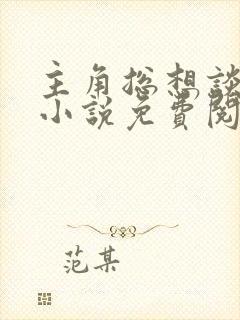 主角总想談
小説免費閱
范某